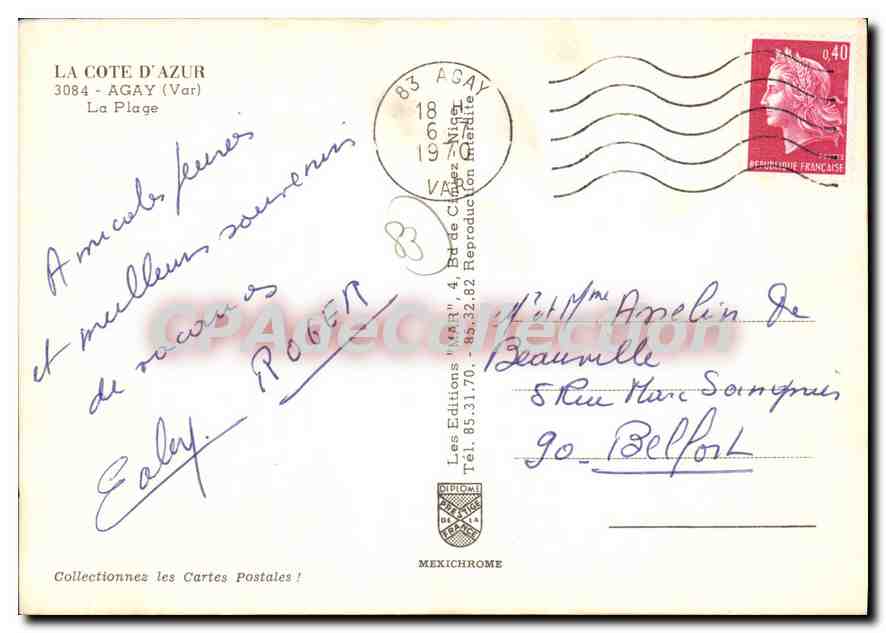 LA COTE D'AZUR
3084 - AGAY (Var)
La Plage
83 AGAY
18 H
6 - 7
1970
VAR
0,40
REPUBLIQUE FRANÇAISE
Amicales pensées
et meilleurs souvenirs
de vacances
ROGER
83
Les Editions "MAR", 4, Bd de Cimiez - Nice
Tél. 85.31.70. - 85.32.82 Reproduction Interdite
Mr et Mme Asselin de
Beauville
8 Rue Marc Sangnier
90 - Belfort
DIPLOME
PRESTIGE
DE LA
FRANCE
MEXICHROME
Collectionnez les Cartes Postales !
CPAdeCollection.com